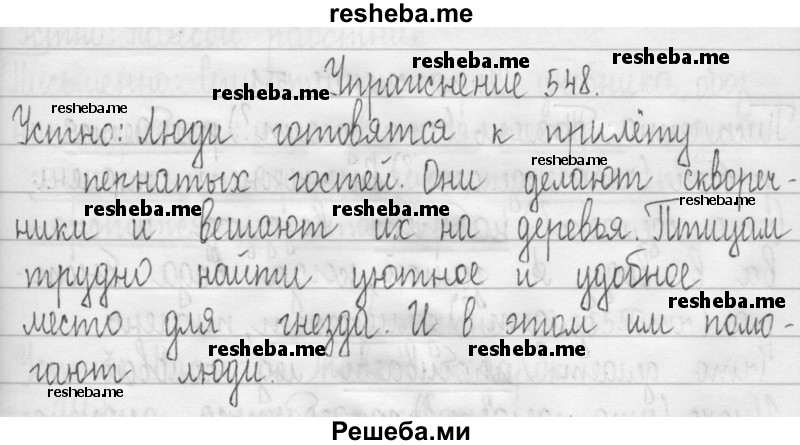 resheba.me
Упражнение 548.
resheba.me
resheba.me
resheba.me
Устно: Люди готовятся к прилёту
resheba.me
пернатых гостей. Они делают сквореч-
resheba.me
resheba.me
resheba.me
ники и вешают их на деревья. Птицам
трудно найти уютное и удобное
resheba.me
место для гнезда. И в этом им помо-
resheba.me
resheba.me
гают люди.
resheba.me
Решеба.ми